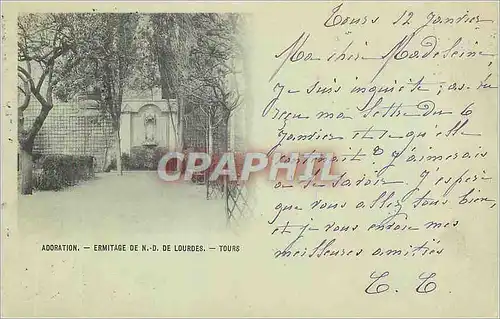 Tours 12 Janvier
Ma chère Madeleine
Je suis inquiète ; as-tu
reçu ma lettre du 6
Janvier et ce qu'elle
contenait ? J'aimerais
à le savoir. J'espère
que vous allez tous bien,
et je vous envoie mes
meilleures amitiés
CPARAMA
ADORATION. — ERMITAGE DE N.-D. DE LOURDES. — TOURS